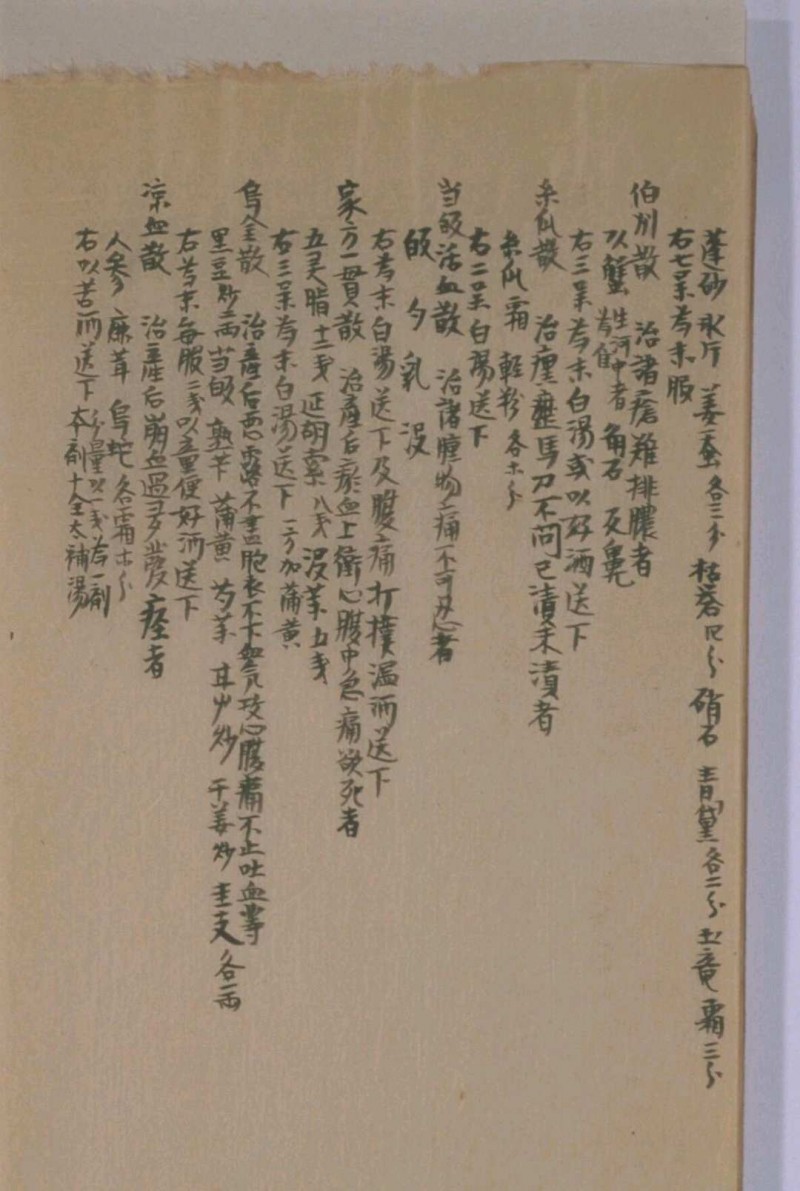 蓬砂 氷片 姜蚕 各三分 枯苓 四分 硝石 青黛 各二分 土竜霜 三分
右七味為末服
伯州散 治諸瘡難排膿者
以蟹 生河中者為佳 角石 反鼻
右三味為末白湯或以好酒送下
糸瓜散 治瘰癧馬刀不問已潰未潰者
糸瓜霜 軽粉 各等分
右二味白湯送下
当皈活血散 治諸腫物痛不可忍者
皈 芍 乳 没
右為末白湯送下及腹痛打撲温酒送下
家方一貫散 治産后瘀血上衝心腹中急痛欲死者
五灵脂 十二戋 延胡索 八戋 没薬 五戋
右三味為末白湯送下 一方加蒲黄
烏金散 治産后悪露不尽胞衣不下血気攻心腹痛不止吐血等
黒豆炒 二両 当皈 熟芐 蒲黄 芍薬 甘艸炒 干姜炒 圭支 各一両
右為末毎服二戋以童便好酒送下
凉血散 治産后崩血過多発痙者
人参 鹿茸 烏蛇 各霜等分
右以苦酒送下 分量以一戋為一剤 本剤十全大補湯